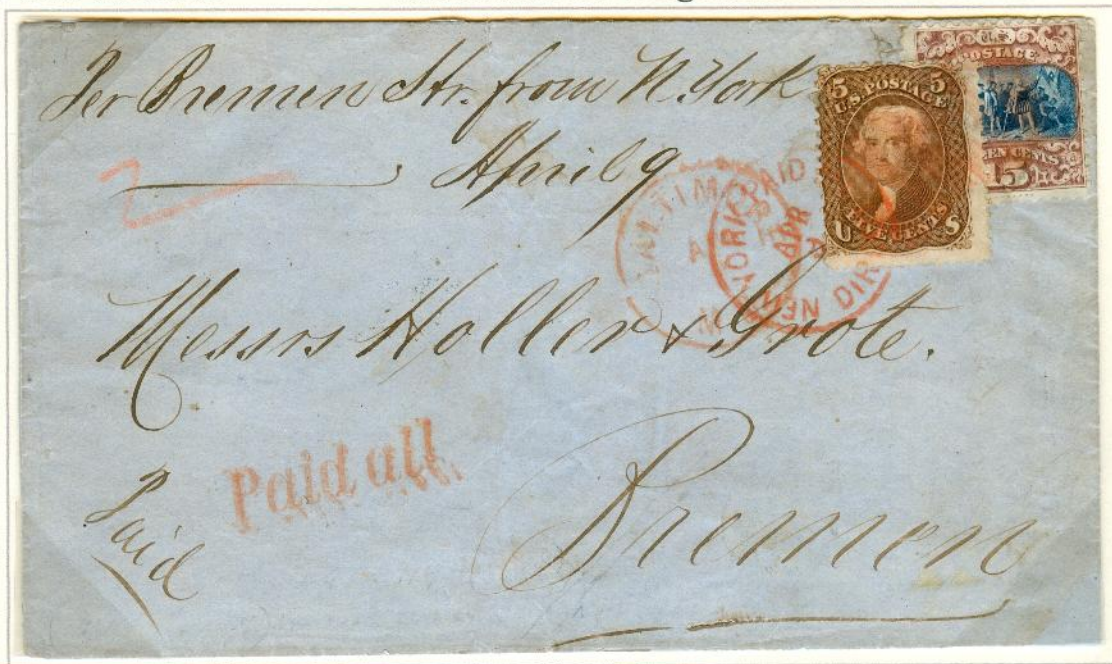 Per Bremen Str. from N. York
April 9
U.S.
POSTAGE
EEN CENTS
15
5 5
U.S. POSTAGE
FIVE CENTS
U S
BALTIM
M
NEW YORK PAID
APR
DIR
Messrs Holler & Grote.
Paid all
Paid
Bremen